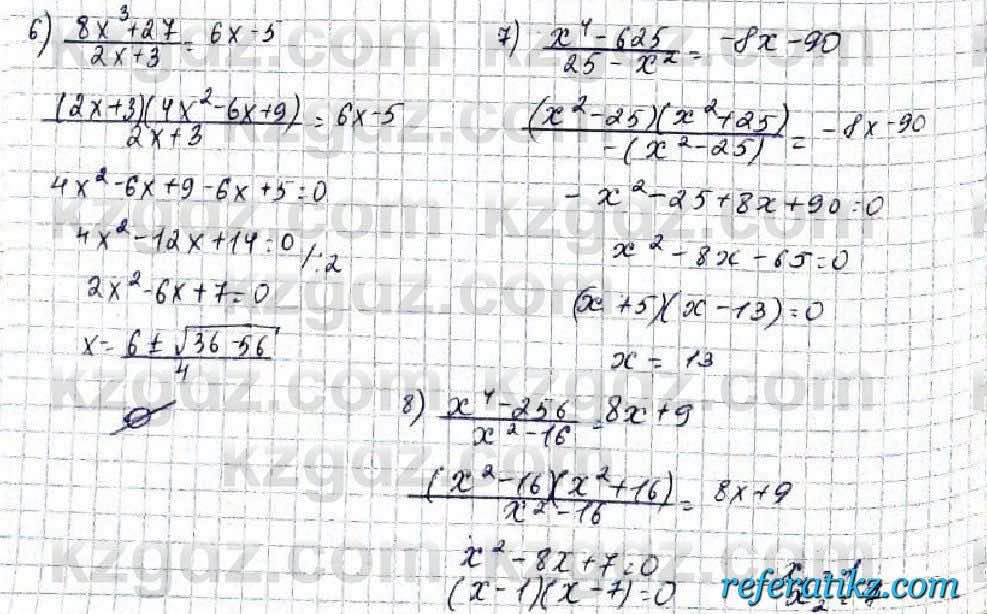 6) (8x³+27)/(2x+3) = 6x-5
((2x+3)(4x²-6x+9))/(2x+3) = 6x-5
4x²-6x+9-6x+5=0
4x²-12x+14=0 /:2
2x²-6x+7=0
x = (6±√(36-56))/4
∅
7) (x⁴-625)/(25-x²) = -8x-90
((x²-25)(x²+25))/(-(x²-25)) = -8x-90
-x²-25+8x+90=0
x²-8x-65=0
(x+5)(x-13)=0
x = 13
8) (x⁴-256)/(x²-16) = 8x+9
((x²-16)(x²+16))/(x²-16) = 8x+9
x²-8x+7=0
(x-1)(x-7)=0
kzgdz.com
referatikz.com